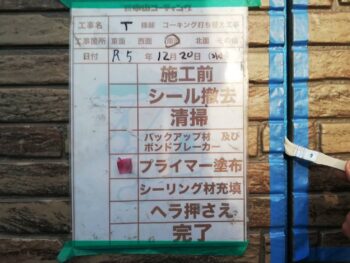 ㈱中山コーキング
工事名 T 様邸 コーキング打ち替え工事
工事箇所 東面 西面 南面 北面 その他
日付 R5年12月20日(水)
施工前
シール撤去
清掃
バックアップ材 及び
ボンドブレーカー
プライマー塗布
シーリング材充填
ヘラ押さえ
完了